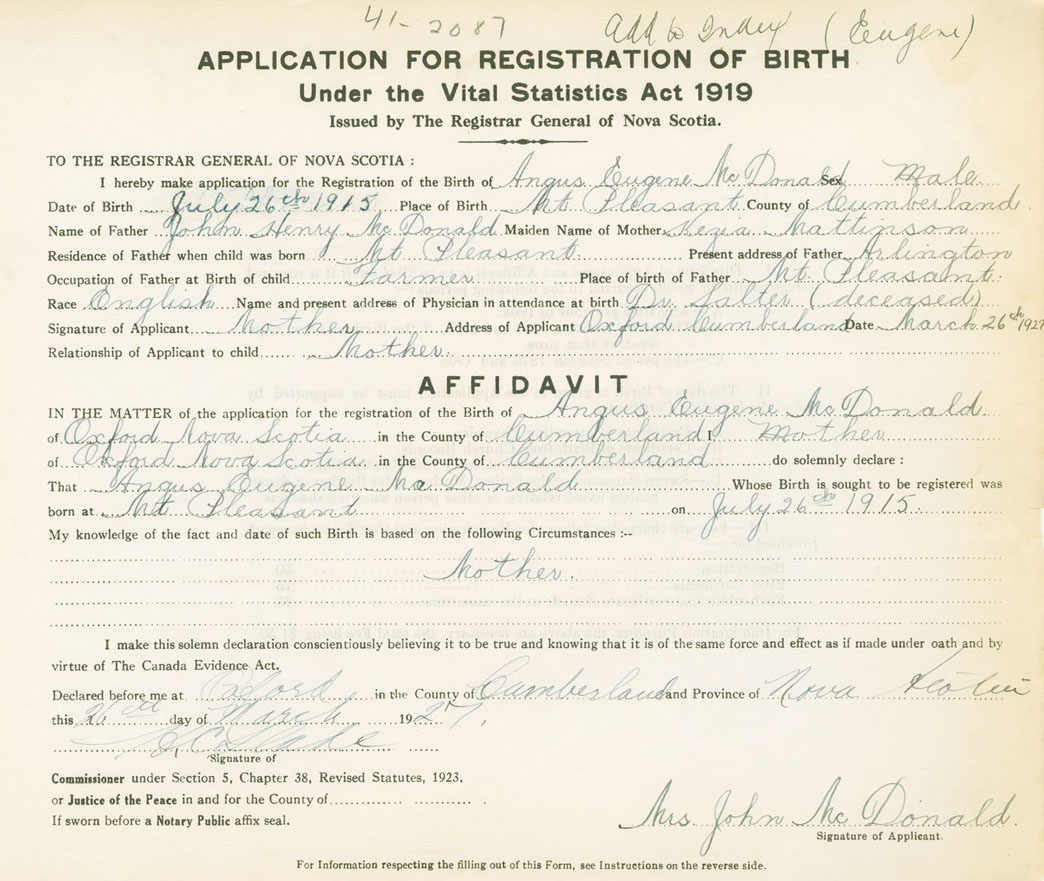 41-2087 Add to Index (Eugene)
APPLICATION FOR REGISTRATION OF BIRTH
Under the Vital Statistics Act 1919
Issued by The Registrar General of Nova Scotia.
TO THE REGISTRAR GENERAL OF NOVA SCOTIA :
I hereby make application for the Registration of the Birth of Angus Eugene McDonald Sex Male
Date of Birth July 26th 1915 Place of Birth Mt Pleasant County of Cumberland
Name of Father John Henry McDonald Maiden Name of Mother Kezia Mattinson
Residence of Father when child was born Mt Pleasant Present address of Father Arlington
Occupation of Father at Birth of child Farmer Place of birth of Father Mt. Pleasant.
Race English Name and present address of Physician in attendance at birth Dr. Salter (deceased)
Signature of Applicant Mother Address of Applicant Oxford Cumberland Date March 26th 1927
Relationship of Applicant to child Mother
AFFIDAVIT
IN THE MATTER of the application for the registration of the Birth of Angus Eugene McDonald
of Oxford Nova Scotia in the County of Cumberland I Mother
of Oxford Nova Scotia in the County of Cumberland do solemnly declare :
That Angus Eugene McDonald Whose Birth is sought to be registered was
born at Mt Pleasant on July 26th 1915
My knowledge of the fact and date of such Birth is based on the following Circumstances :--
Mother.
I make this solemn declaration conscientiously believing it to be true and knowing that it is of the same force and effect as if made under oath and by
virtue of The Canada Evidence Act.
Declared before me at Oxford in the County of Cumberland and Province of Nova Scotia
this 26th day of March 1927,
Signature of
Commissioner under Section 5, Chapter 38, Revised Statutes, 1923,
or Justice of the Peace in and for the County of
If sworn before a Notary Public affix seal.
Mrs John McDonald.
Signature of Applicant.
For Information respecting the filling out of this Form, see Instructions on the reverse side.